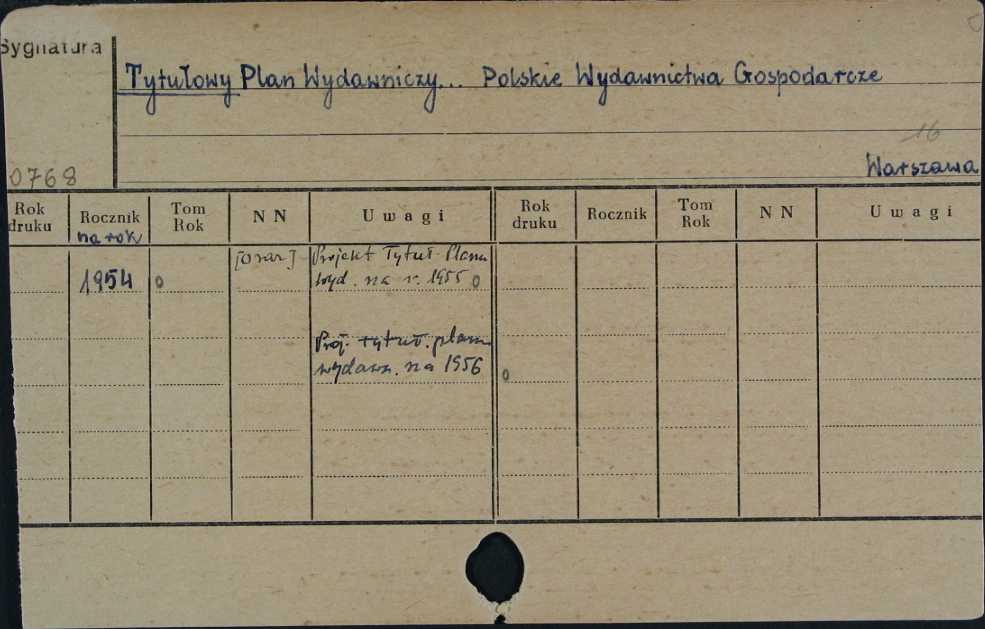 Sygnatura
Tytułowy Plan Wydawniczy... Polskie Wydawnictwa Gospodarcze
16
0768
Warszawa
Rok druku Rocznik na rok Tom Rok NN Uwagi Rok druku Rocznik Tom Rok NN Uwagi
1954 o [oraz] Projekt Tytuł Planu
wyd. na r. 1955 o
Proj. tytuł. planu
wydawn. na 1956 o